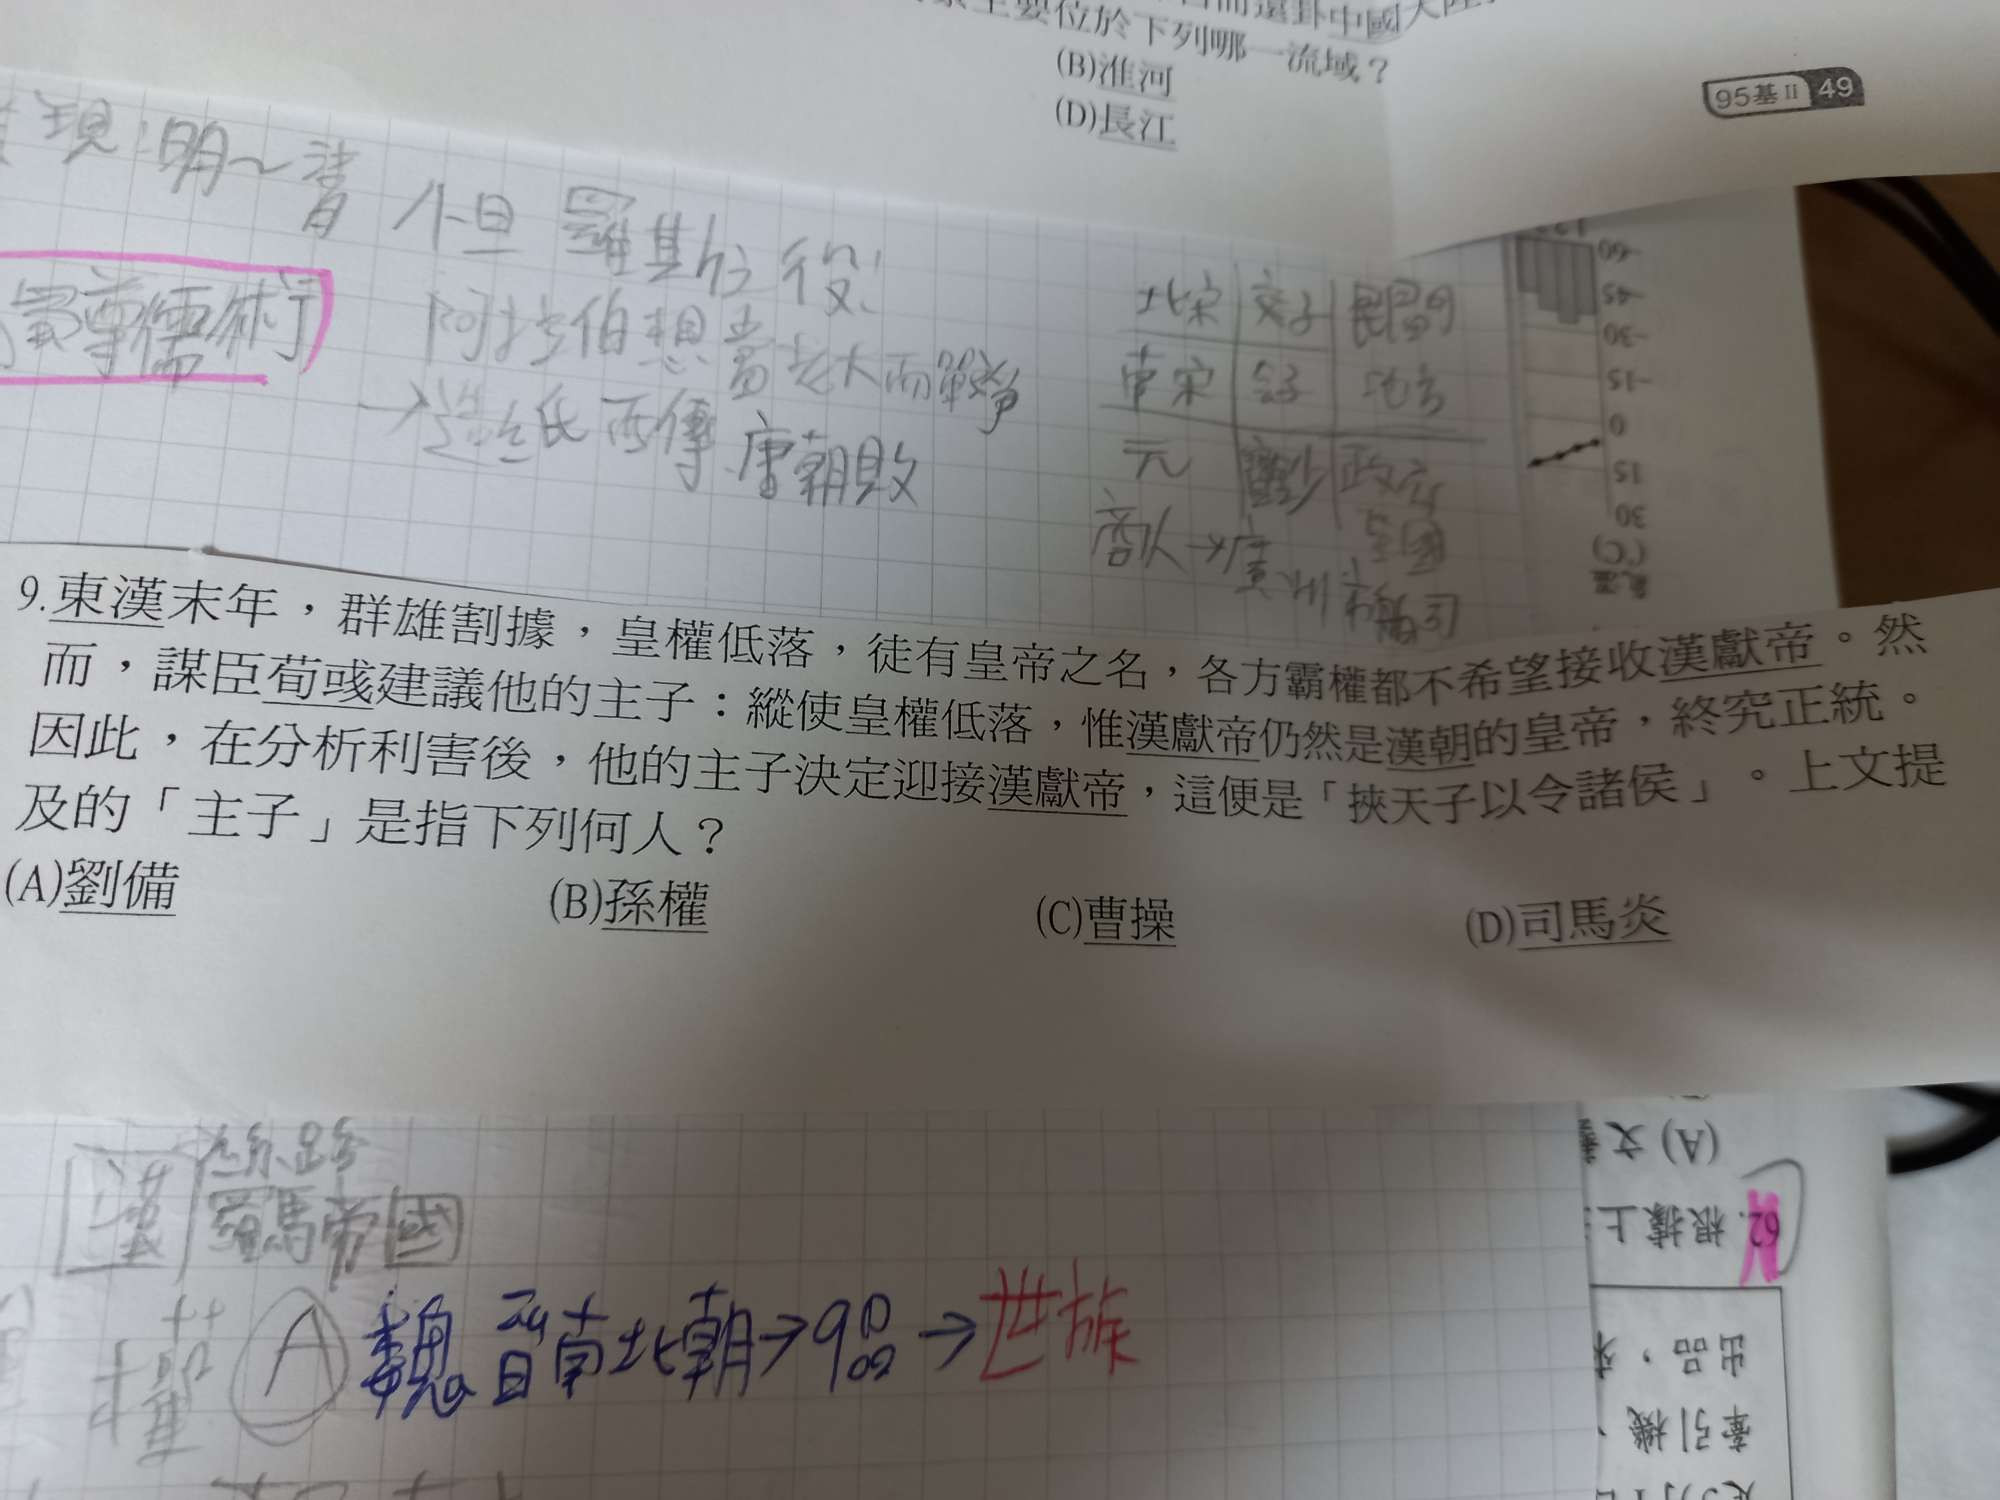 主要位於下列哪一流域？
(B)淮河
(D)長江
95基Ⅱ 49
現：明～清
怛羅斯之役：
阿拉伯想當老大而戰爭
→造紙西傳 唐朝敗
尊儒術
北宋 交子 民間
南宋 會子 地方
元 寶鈔
商人→廣州
-60
-45
-30
-15
0
15
30
(℃)
氣溫
9.東漢末年，群雄割據，皇權低落，徒有皇帝之名，各方霸權都不希望接收漢獻帝。然
而，謀臣荀彧建議他的主子：縱使皇權低落，惟漢獻帝仍然是漢朝的皇帝，終究正統。
因此，在分析利害後，他的主子決定迎接漢獻帝，這便是「挾天子以令諸侯」。上文提
及的「主子」是指下列何人？
(A)劉備
(B)孫權
(C)曹操
(D)司馬炎
漢 絲路
羅馬帝國
A 魏晉南北朝→9品→世族
(A) 文
62. 根據上
出品，來
牽引機、